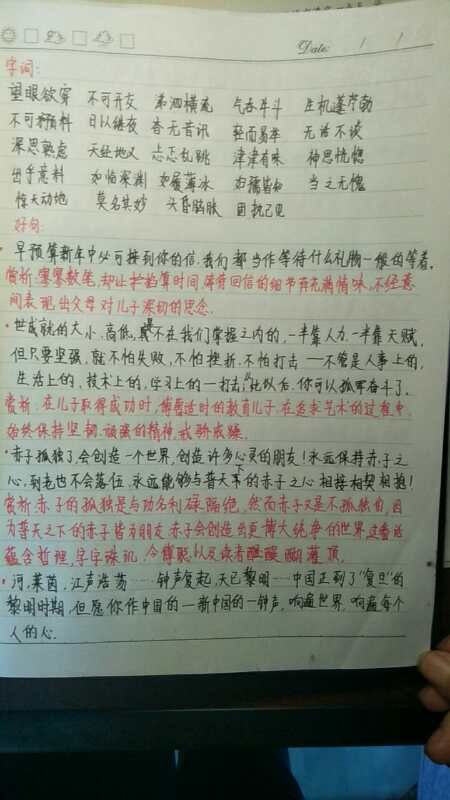 Date: / /
字词:
望眼欲穿 不可开交 涕泗横流 气吞牛斗 生机蓬勃
不可预料 日以继夜 杳无音讯 轻而易举 无话不谈
深思熟虑 天经地义 忐忑乱跳 津津有味 神思恍惚
出乎意料 如临深渊 如履薄冰 如孺皆知 当之无愧
惊天动地 莫名其妙 头昏脑胀 固执己见
好句:
·早预算新年中必可接到你的信,我们都当作等待什么礼物一般的等着。
赏析:寥寥数笔,却让掐指算时间等着回信的细节再充满情味,不经意
间表现出父母对儿子深切的思念.
·世成就的大小,高低,是不在我们掌握之内的,一半靠人力,一半靠天赋,
但只要坚强,就不怕失败,不怕挫折,不怕打击——不管是人事上的,
生活上的,技术上的,学习上的——打击从此以后,你可以孤军奋斗了.
赏析:在儿子取得成功时,傅雷适时的教育儿子,在追求艺术的过程中,
始终保持坚韧、顽强的精神,戒骄戒躁.
·赤子孤独了,会创造一个世界,创造许多心灵的朋友!永远保持赤子之
心,到老也不会落伍,永远能够与普天下的赤子之心相接相契相抱!
赏析:赤子的孤独是与功名利碌隔绝,然而赤子又是不孤独的,因
为普天之下的赤子皆为朋友.赤子会创造出更博大纯争的世界.这番话
蕴含哲理,字字珠玑,令傅聪以及读者醍醐灌顶.
·河,莱茵,江声浩荡……钟声复起,天已黎明……中国正到了"复旦"的
黎明时期,但愿你作中国的—新中国的—钟声,响遍世界,响遍每个
人的心.